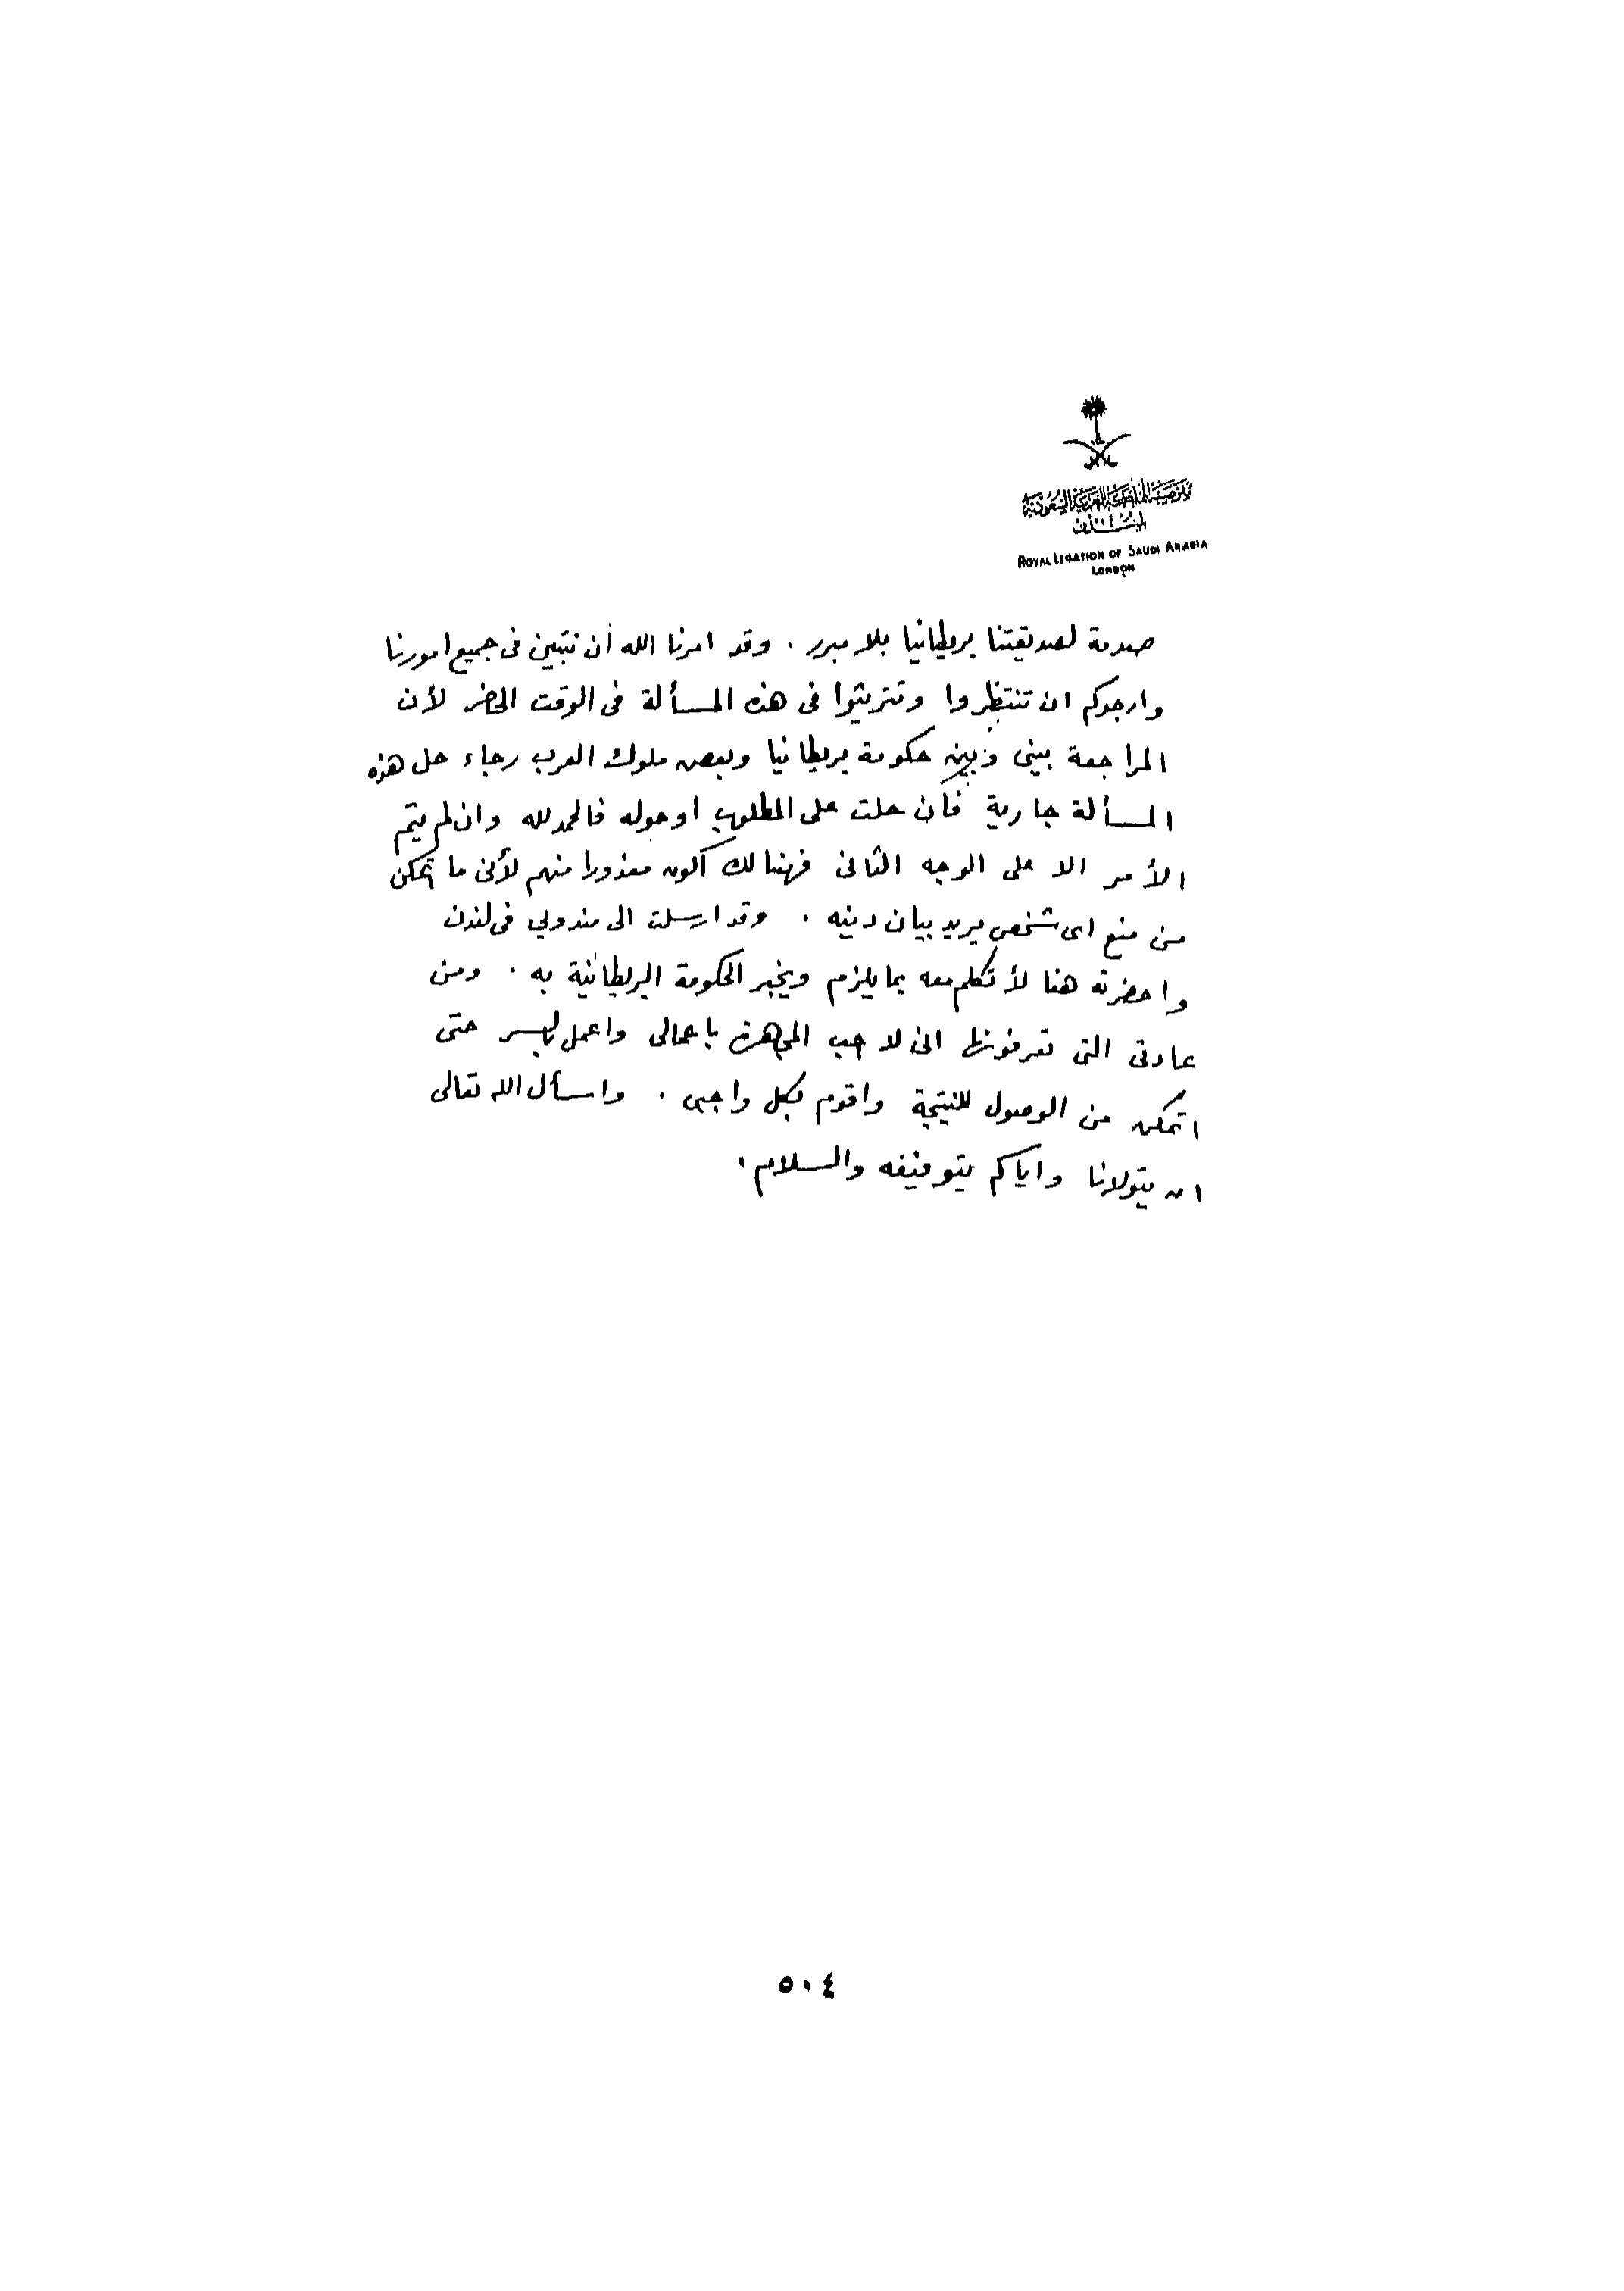 مفوضية المملكة العربية السعودية
بلندن
ROYAL LEGATION OF SAUDI ARABIA
LONDON
صدمة لصديقتنا بريطانيا بلا مبرر . وقد امرنا الله أن نتبين في جميع امورنا
وارجوكم ان تنتظروا وتتريثوا في هذه المسألة في الوقت الحاضر لأن
المراجعة بيني وبين حكومة بريطانيا وبعض ملوك العرب رجاء حل هذه
المسألة جارية فأن حلت على المطلوب او حوله فالحمد لله وان لم يتم
الأمر الا على الوجه الثانى فهنالك اكون معذورا منهم لأنى ما اتمكن
من منع اى شخص يريد بيان دينه . وقد ارسلت الى مندوبي في لندن
واحضرته هنا لأتكلم معه بما يلزم ويخبر الحكومة البريطانية به . ومن
عادتى التى تعرفونها انى لا احب المجاهرة باعمالى واعمل بالسر حتى
اتمكن من الوصول للنتيجة واقوم بكل واجبى . واسأل الله تعالى
ان يتولانا واياكم بتوفيقه والسلام .
٥٠٤